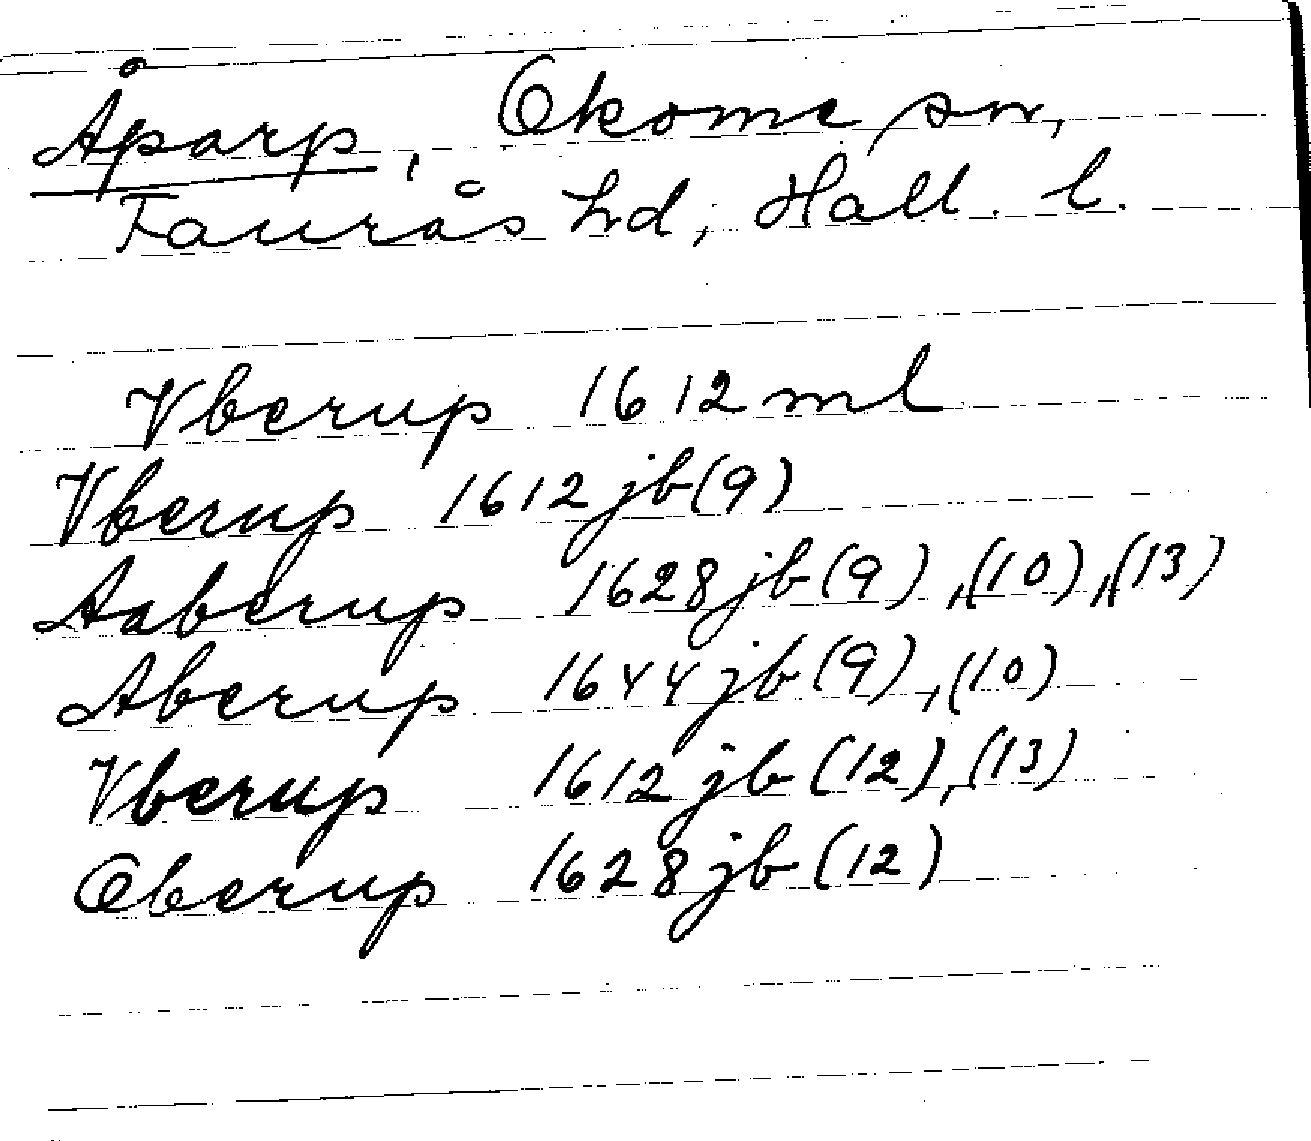 Åparp, Okome sn,
Faurås hd, Hall. l.
Vberup 1612 ml
Vberup 1612 jb (9)
Aaberup 1628 jb (9), (10), (13)
Aberup 1644 jb (9), (10)
Vberup 1612 jb (12), (13)
Oberup 1628 jb (12)